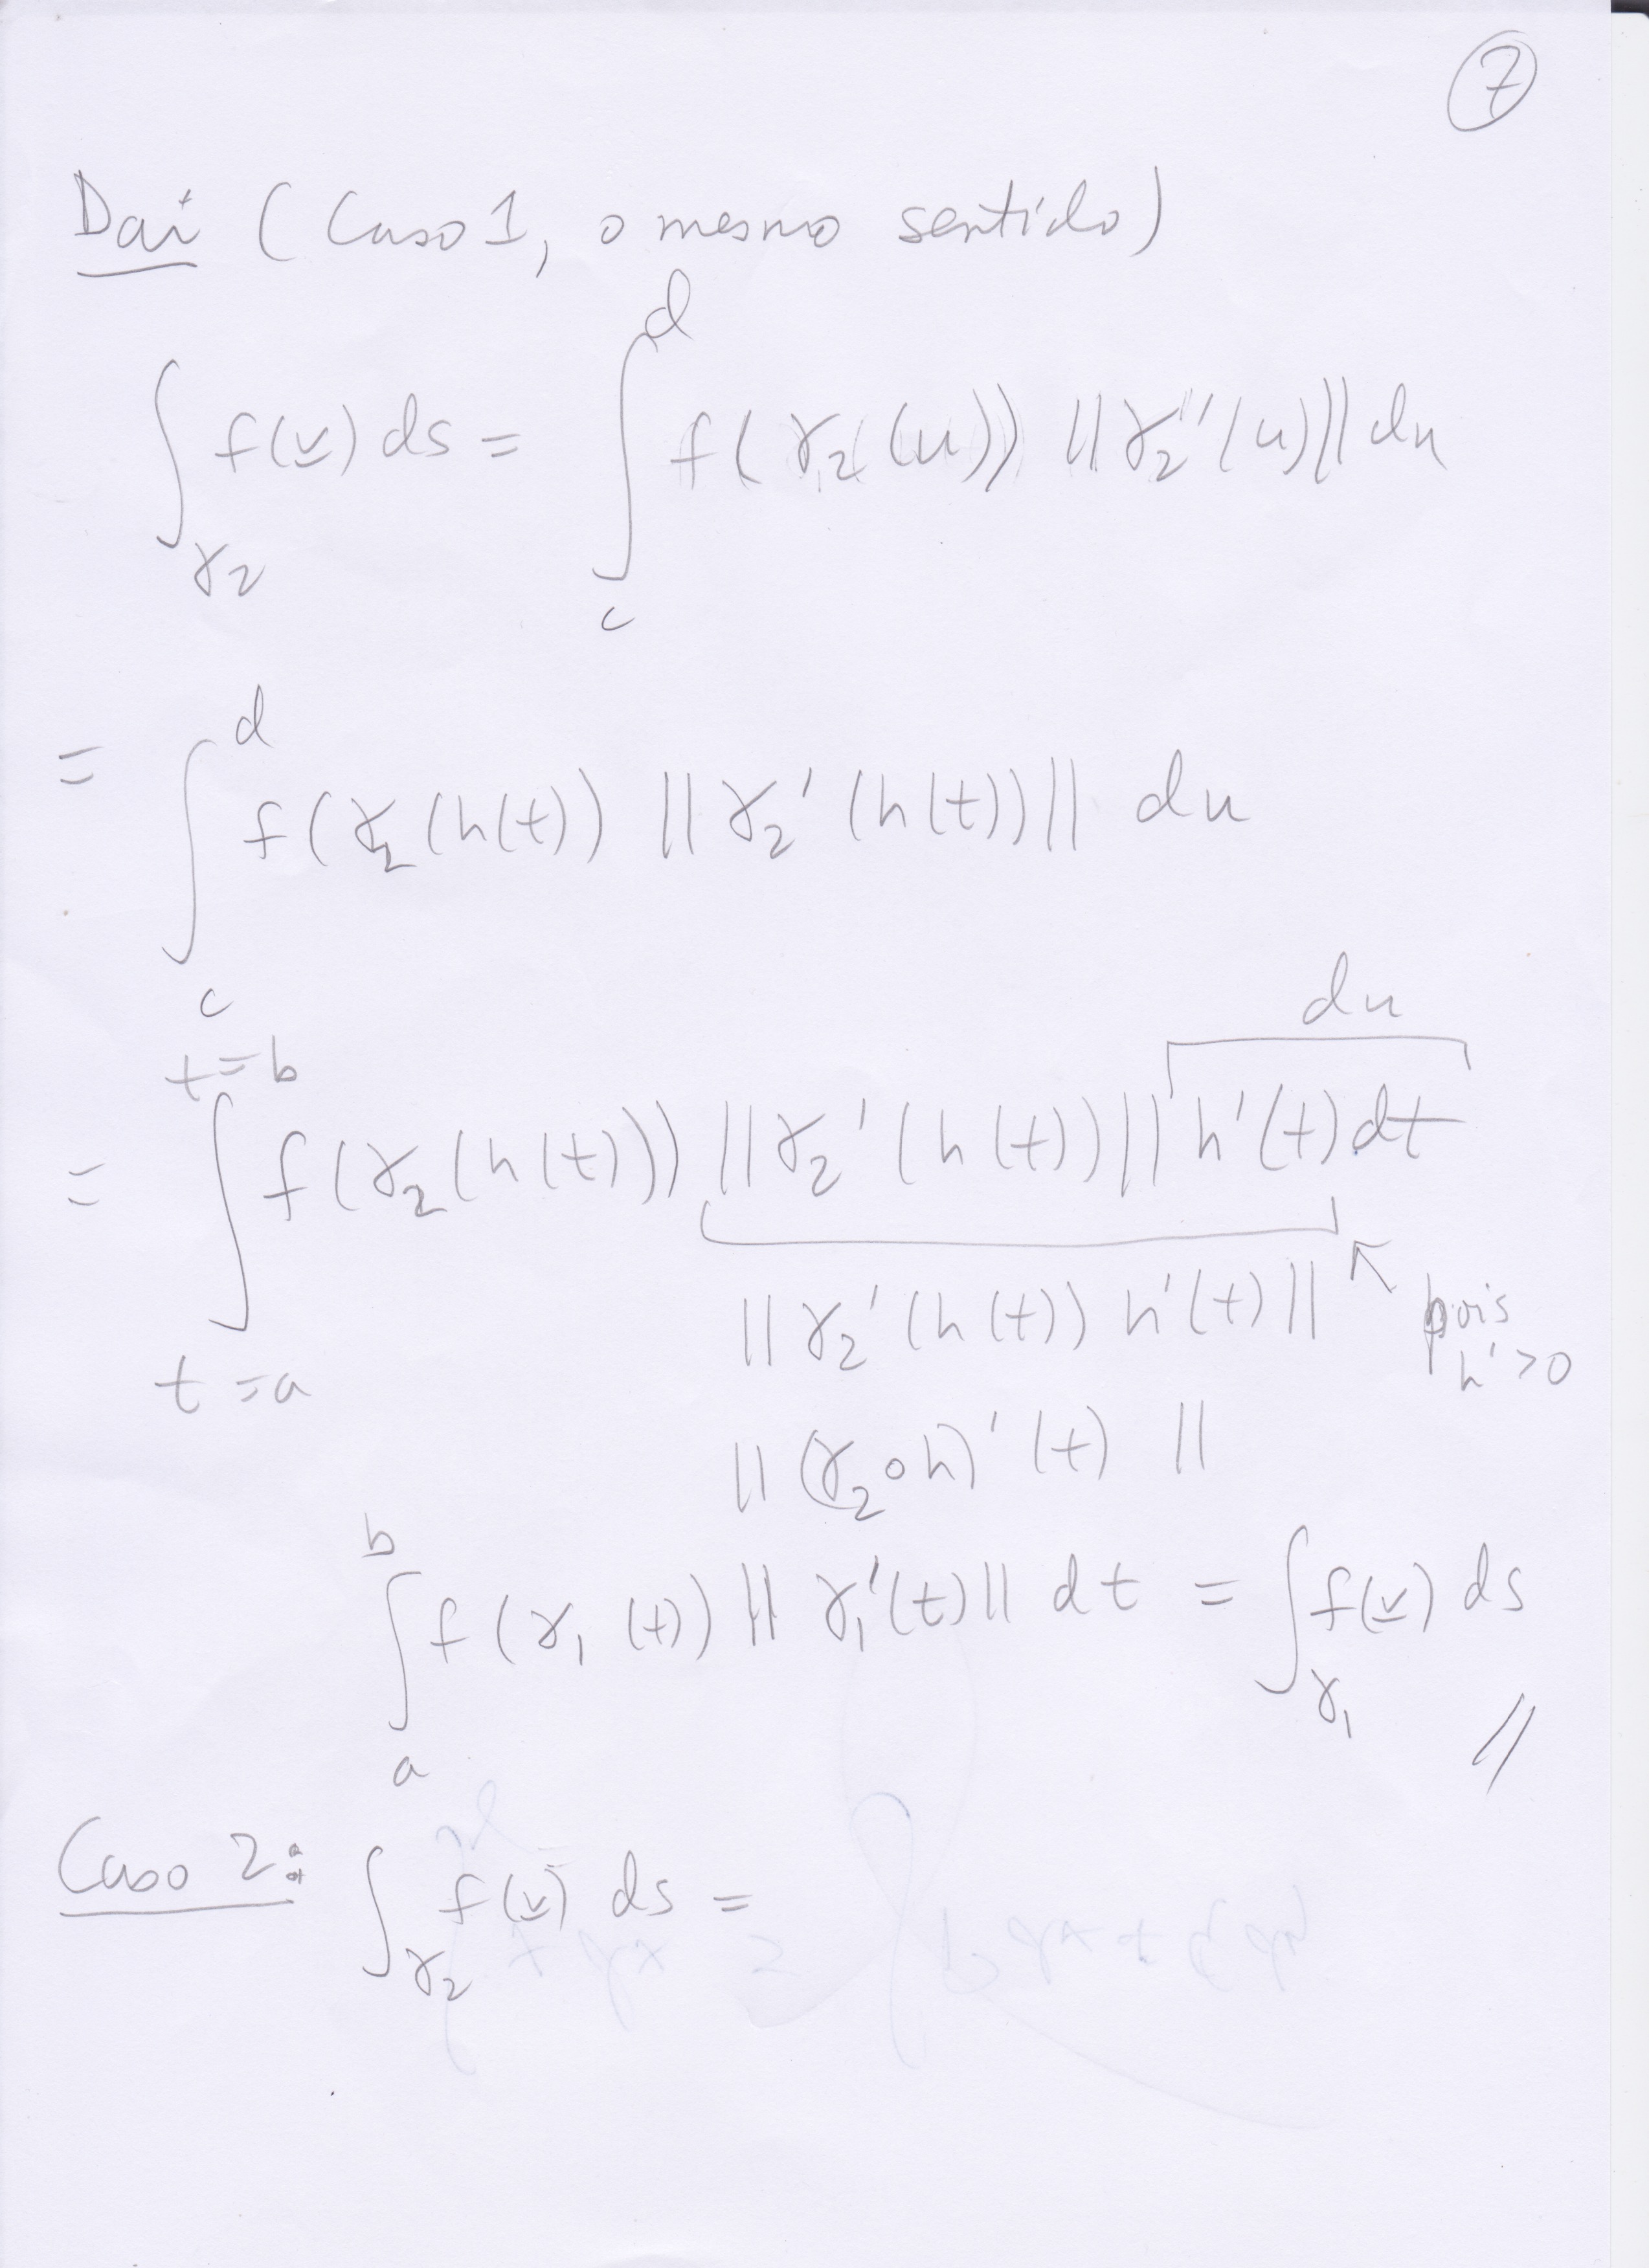 7
Daí (Caso 1, o mesmo sentido)
∫_{γ₂} f(v̲) ds = ∫_c^d f(γ₂(u)) ||γ₂'(u)|| du
= ∫_c^d f(γ₂(h(t)) ||γ₂'(h(t))|| du
du
= ∫_{t=a}^{t=b} f(γ₂(h(t))) ||γ₂'(h(t))|| h'(t) dt
||γ₂'(h(t)) h'(t)|| ↖ pois h'>0
||(γ₂∘h)'(t)||
∫_a^b f(γ₁(t)) ||γ₁'(t)|| dt = ∫_{γ₁} f(v̲) ds //
Caso 2: ∫_{γ₂} f(v̲) ds =